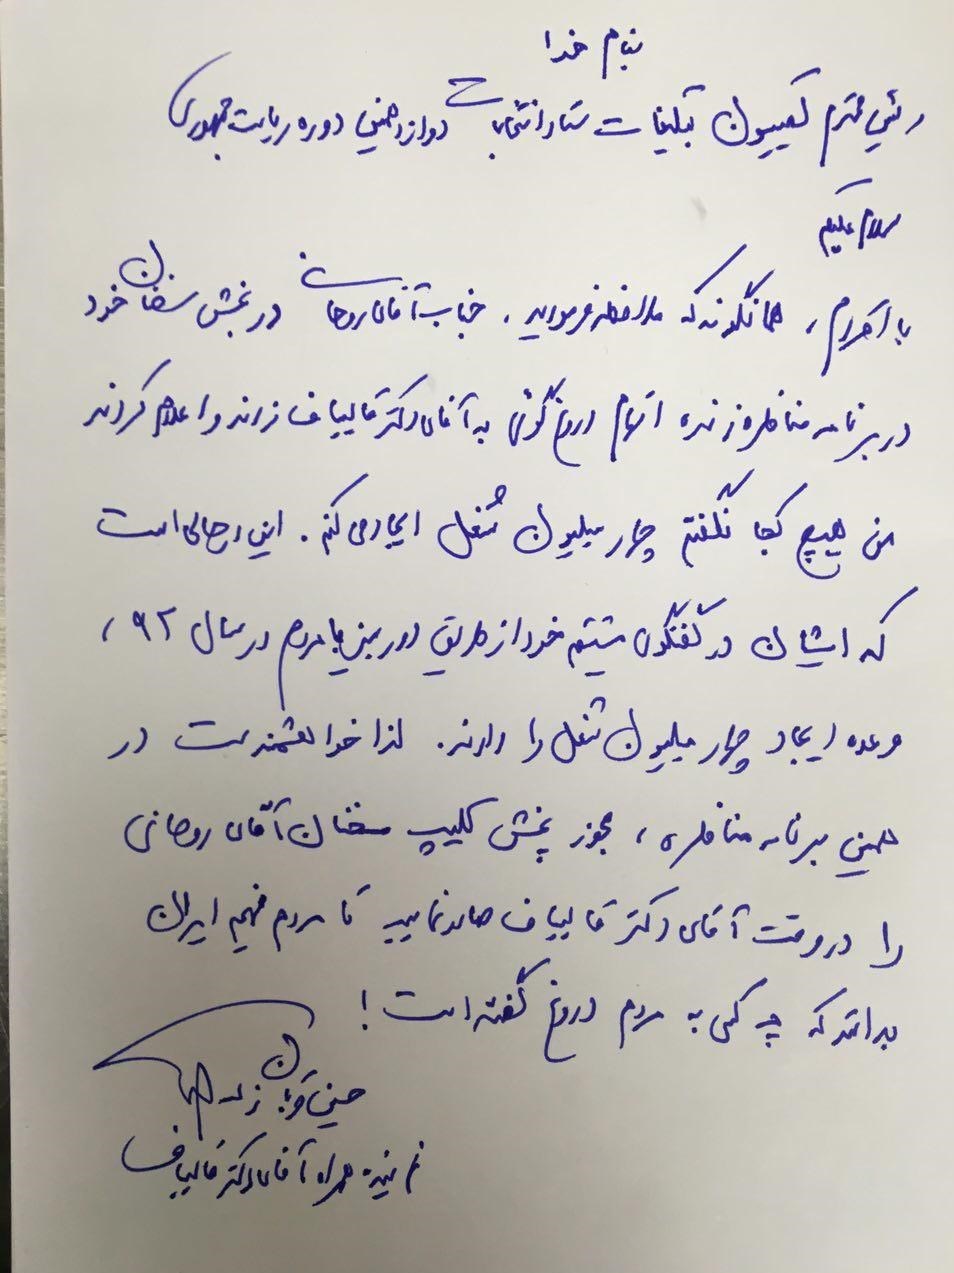 بنام خدا
رئیس محترم کمیسیون تبلیغات ستاد انتخابات دوازدهمین دوره ریاست جمهوری
سلام علیکم
با احترام، همانگونه که ملاحظه فرمودید. جناب آقای روحانی در بخش سخنان خود
در برنامه مناظره زنده اتهام دروغ گوئی به آقای دکتر قالیباف زدند و اعلام کردند
من هیچ کجا نگفتم چهار میلیون شغل ایجاد می کنم. این در حالی است
که ایشان در گفتگوی مستقیم خود از طریق دوربین با مردم در سال ۹۲،
وعده ایجاد چهار میلیون شغل را دادند. لذا خواهشمندست در
همین برنامه مناظره، مجوز پخش کلیپ سخنان آقای روحانی
را در وقت آقای دکتر قالیباف صادر نمایید تا مردم فهیم ایران
بدانند که چه کسی به مردم دروغ گفته است!
حسین قربان زاده
نماینده همراه آقای دکتر قالیباف